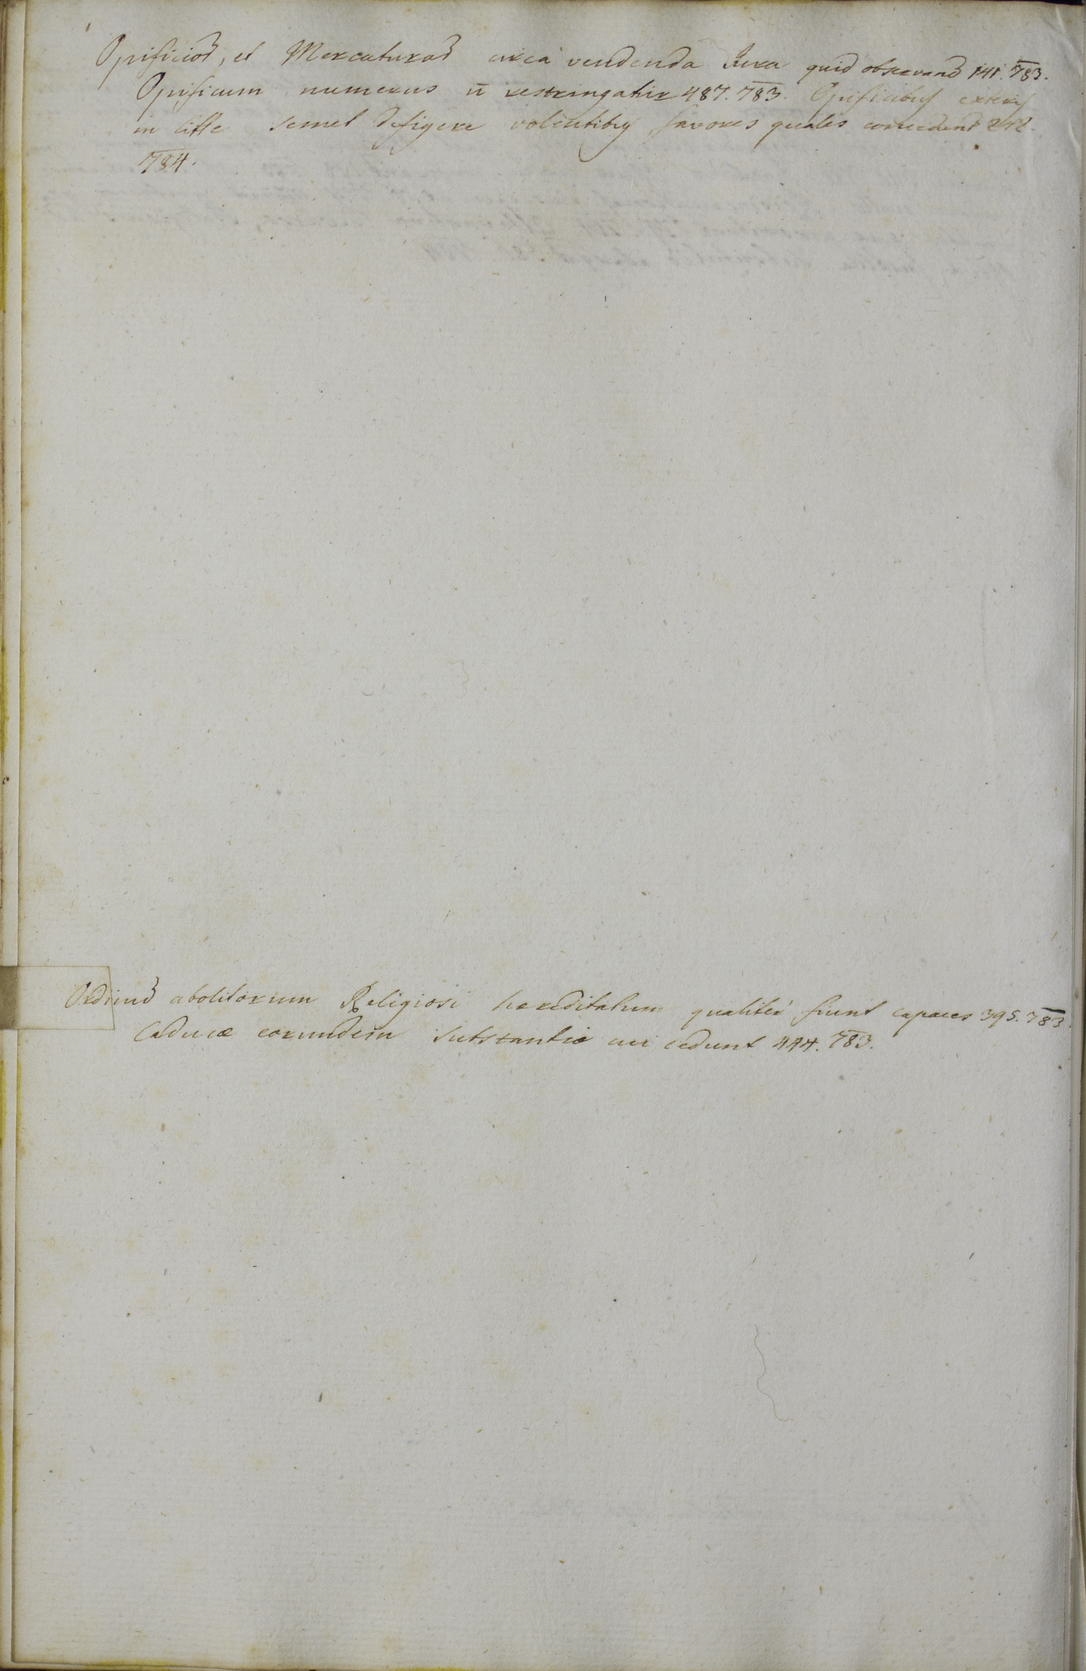 Opificioꝝ, et Mercaturaꝝ circa vendenda Jura quid observanꝺ 141. 783.
Opificum numerus n̄ restringatur 487. 783. Opificibꝰ exteris
in se semel defigere volentibꝰ favores quales concedend
784.
Ordinuꝝ abolitorum Religiosi hereditatum qualiter fiunt capaces 395. 783.
Caducæ eorundem substantiæ cui cedunt 444. 783.